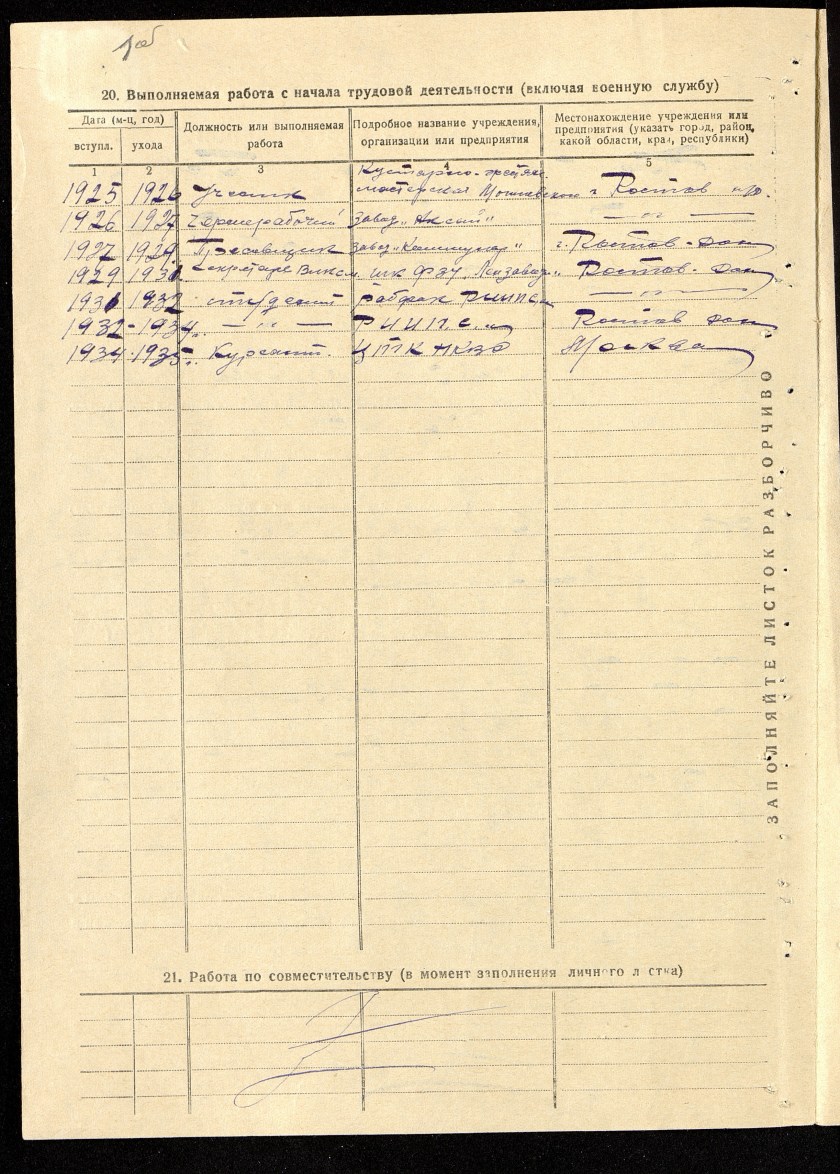 1об
20. Выполняемая работа с начала трудовой деятельности (включая военную службу)
Дата (м-ц, год) Должность или выполняемая работа Подробное название учреждения, организации или предприятия Местонахождение учреждения или предприятия (указать город, район, какой области, края, республики)
вступл. ухода
1 2 3 4 5
Кустарно-
1925 1926 Ученик мастерская г. Ростов н/Д.
1926 1927 Чернорабочий Завод „Аксай" — „ —
1927 1929 Завод „Коммунар" г. Ростов-Дон
1929 1931 Секретарь ВЛКСМ шк ФЗУ Лензавод" Ростов-Дон
1931 1932 студент рабфак РИИПС — „ —
1932-1934 — „ — РИИПС Ростов Дон
1934-1935 Курсант. ЦШК НКВД Москва
ЗАПОЛНЯЙТЕ ЛИСТОК РАЗБОРЧИВО
21. Работа по совместительству (в момент заполнения личного листка)